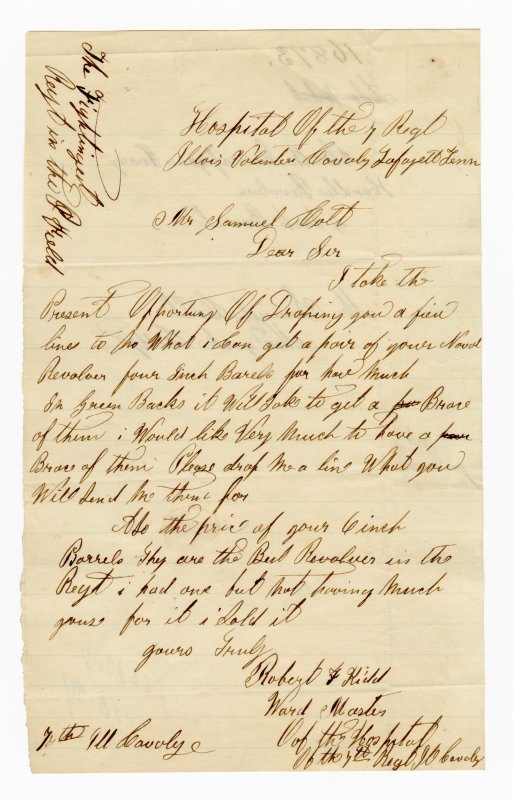 The Fightingest
Regt in the Field
Hospital Of the 7 Regt
Illois Volenteer Cavalry Lafayett Tenn
Mr Samuel Colt
Dear Sir
I take the
Present Opportuny Of Droping you a fiew
lines to no What i Can get a pair of your Naval
Revolver four Inch Barels for how Much
In Green Backs it Will take to get a Brace
of them i Would like Very Much to have a
Brace of them Please drop Me a line What you
Will Send Me them for
Also the price of your 6 inch
Barrels They are the Best Revolver in the
Regt i had one but not having Much
youse for it i Sold it
yours Truly
Robert F Kidd
Ward Master
Of the Hospital
Of the 7th Regt Ill Cavalry
7th Ill Cavalry